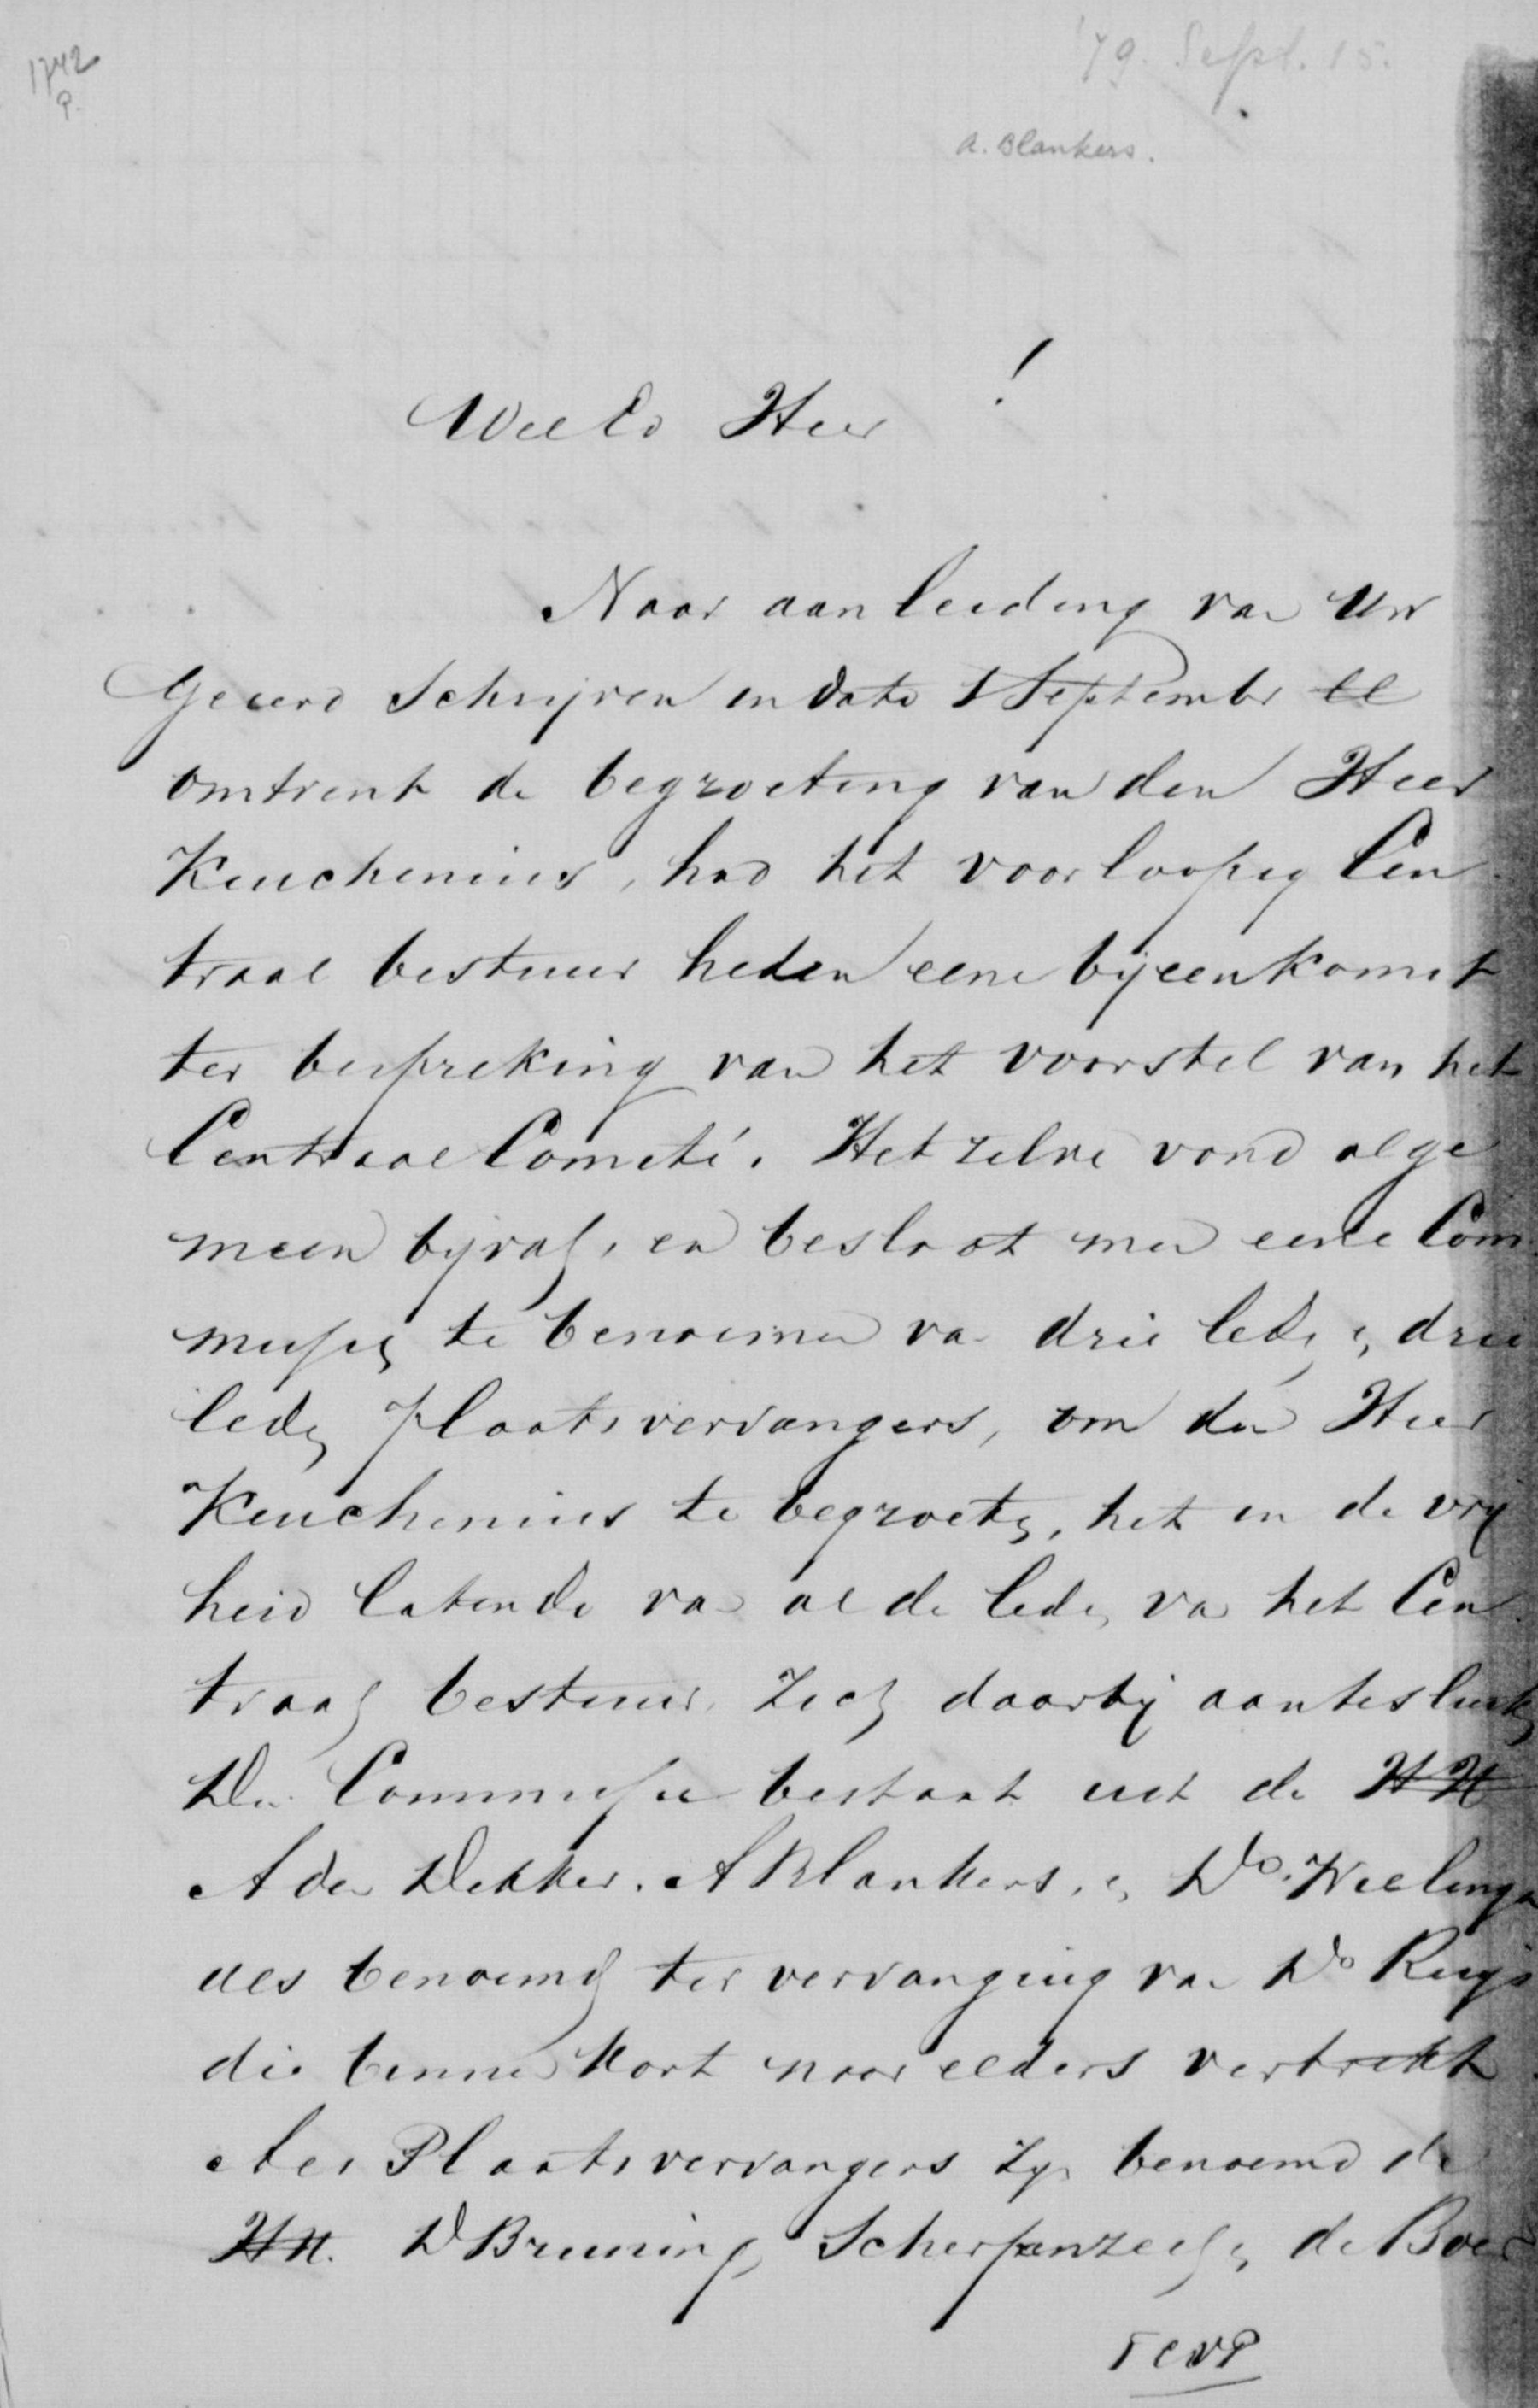 1742
P.
'79. Sept. 15.
A. Blankers.
Wel Ed Heer !
Naar aanleiding van Uw
Geëerd Schrijven in dato 1 September ll
omtrent de begroeting van den Heer
Keuchenius, had het voorloopig Cen
traal bestuur heden eene bijeenkomst
ter bespreking van het voorstel van het
Centraal Comité. Hetzelve vond alge
meen bijval, en besloot men eene Com
missie te benoemen van drie leden en drie
leden plaatsvervangers, om den Heer
Keuchenius te begroeten, het in de vrij
heid latende van al de leden van het Cen
traal bestuur zich daarbij aantesluiten
De Commissie bestaat uit de HH
A den Dekker. A Blankers, en Ds. Wielinga
als benoemd ter vervanging van Ds Ruys
die binnen kort naar elders vertrekt.
Als Plaatsvervangers zijn benoemd de
HH. D Bruning, Scherpenzeel en de Boer
TCVP